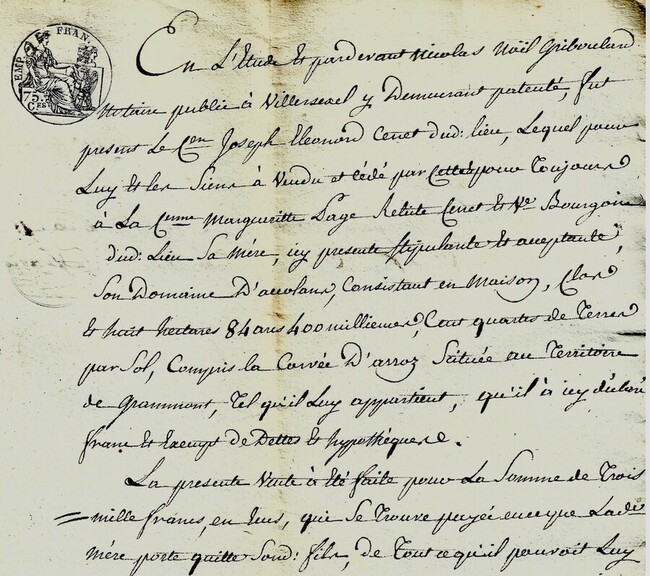 EMP. RE FRAN.
75
CES
En L'Etude Et pardevant Nicolas Noël Griboulard
Notaire public à Villersexel y Demeurant patenté, fut
present Le Cen Joseph Eleonord Cenet dud: lieu, Lequel pour
Luy Et les Siens à Vendu et cédé par Cettes pour Toujours
à La Cenne Margueritte Page Relicte Cenet Et Ve Bourgoin
dud: Lieu Sa Mére, icy presente stipulante et acceptante,
Son Domaine D'accolans, Consistant en Maison, Clos
Et huit hectares 84 ares 400 milliemes, Cent quartes de Terres
par Sol, Compris la Corvée D'arroz Scituée au Territoire
de Grammont, Tel qu'il Luy appartient, qu'il à icy déclaré
franc Et Exempt de Dettes Et hypothéques.
La presente Vente à Eté faite pour La Somme de Trois
mille francs, en Ecus, qui Se Trouve payée en ce que Lade
Mére porte quitte Sond: fils, de Tout ce qu'il pouvoit Luy